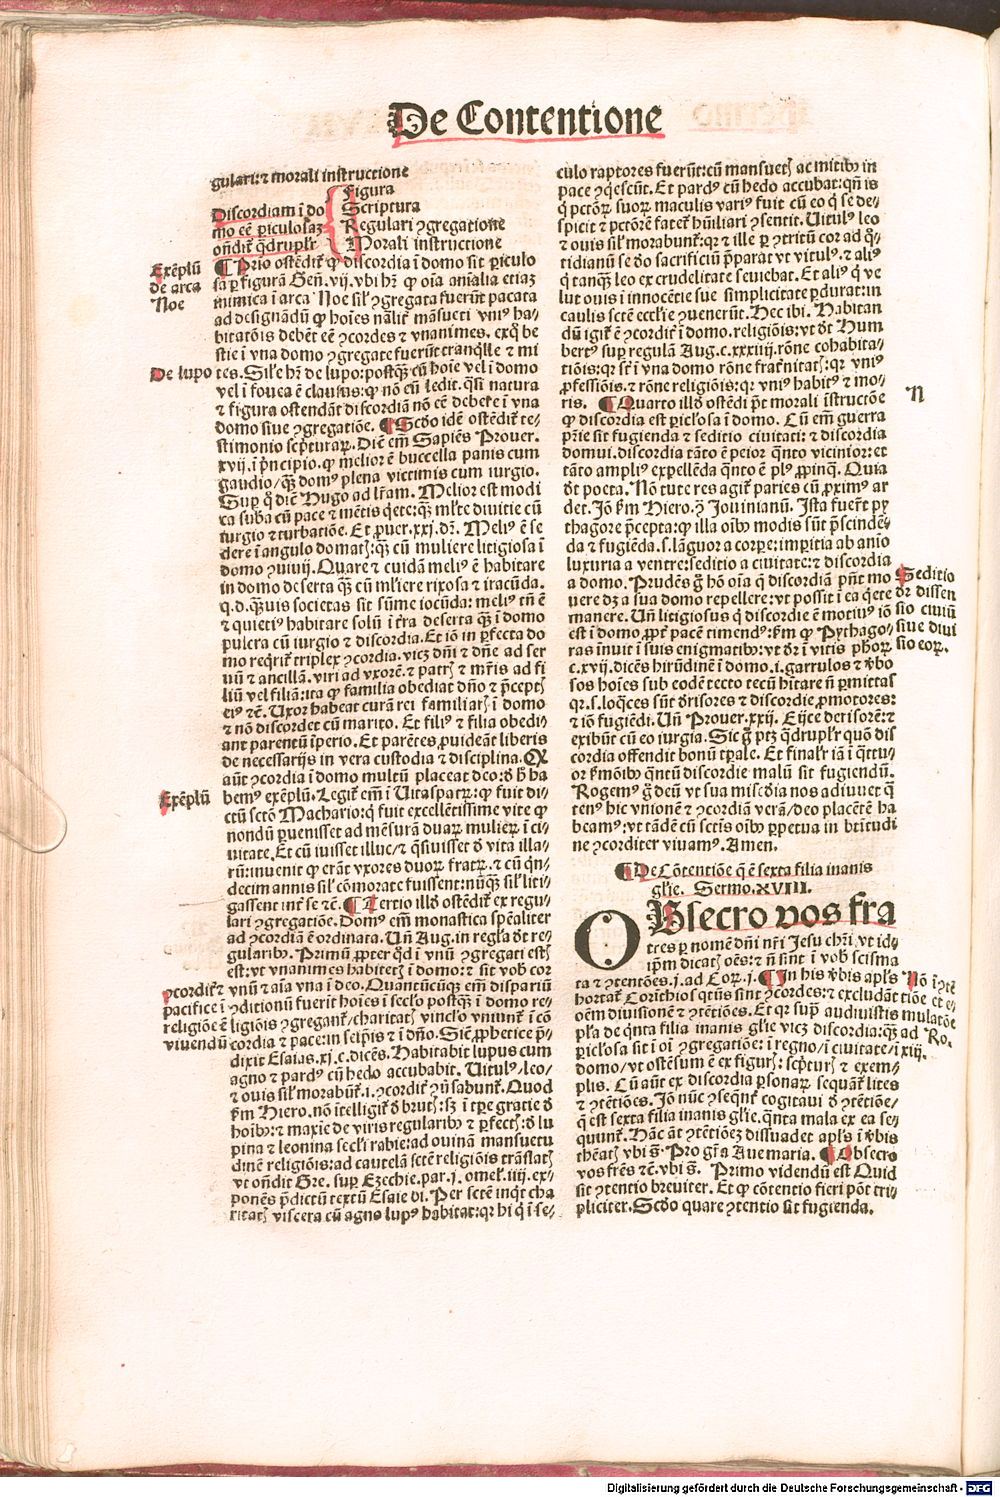 De Contentione
gulari: ⁊ morali instructione
Discordiam ī do
mo eē ꝑiculosaꝫ
on̄dit̄ q̄druplr̄
Figura
Scriptura
Regulari ꝯgregatione
Morali instructione
Exēplū
de arca
Noe
¶ Prīo ostēdit̄ ꝙ discordia ī domo sit ꝑiculo
sa ꝑ figurā Gen̄. vij. vbi hr̄ ꝙ oīa aīalia etiaꝫ
inimica ī arca Noe sil̓ ꝯgregata fuerūt pacata
ad designādū ꝙ hoīes nāliť mansueti vniꝰ ha⸗
bitatōis debēt eē ꝯcordes ⁊ vnanimes. exq̄ be
stie ī vna domo ꝯgregate fuerūt tranq̄lle ⁊ mi
De lupo
tes. Sil̓e hr̄ de lupo: postq̄ꝫ cū hoīe vel ī domo
vel ī fouea ē clausus: ꝙ nō cū ledit. q̄si natura
⁊ figura ostendāt discordiā nō eē debere ī vna
domo siue ꝯgregatiōe. ¶ Scd̄o idē ostēdit̄ te⸗
stimonio scp̄turaꝝ. Dīc̄ em̄ Sapiēs Prouer.
xvij. ī p̄ncipio. ꝙ melior ē buccella panis cum
gaudio / q̄ꝫ domꝰ plena victimis cum iurgio.
Suꝑ q̄ dīc̄ Hugo ad lr̄am. Melior est modi
ca suba cū pace ⁊ mētis q̄ete: q̄ꝫ ml̓te diuitie cū
iurgio ⁊ turbatiōe. Et ꝓuer. xxj. dr̄. Meliꝰ ē se
dere ī angulo domatꝭ: q̄ꝫ cū muliere litigiosa ī
domo ꝯuiuij. Quare ⁊ cuidā meliꝰ ē habitare
in domo deserta q̄ꝫ cū ml̓iere rixosa ⁊ iracūda.
q. d. q̄ꝫuis societas sit sūme iocūda: meliꝰ tn̄ ē
⁊ quietiꝰ habitare solū ī t̄ra deserta q̄ꝫ ī domo
pulcra cū iurgio ⁊ discordia. Et iō in ꝑfecta do
mo req̄rit̄ triplex ꝯcordia. vicꝫ dn̄i ⁊ dn̄e ad ser
uū ⁊ ancillā. viri ad vxorē. ⁊ patrꝭ ⁊ mr̄is ad fi
liū vel filiā: ita ꝙ familia obediat dn̄o ⁊ p̄ceptꝭ
eiꝰ ⁊c̄. Uxor habeat curā rei familiarꝭ ī domo
⁊ nō discordet cū marito. Et filiꝰ ⁊ filia obedi⸗
ant parentū īperio. Et parētes ꝓuideāt liberis
de necessarijs in vera custodia ⁊ disciplina. Qꝙ
aūt ꝯcordia ī domo multū placeat deo: d̄ h̄ ha
Exēplū
bemꝰ exēplū. Legit̄ em̄ ī Uitaspatꝝ: ꝙ fuit di⸗
ctū sctō Machario: q̄ fuit excellētissime vite ꝙ
nondū ꝑuenisset ad mēsurā duaꝝ mulieꝝ ī ci⸗
uitate. Et cū iuisset illuc / ⁊ q̄siuisset d̄ vita illa⸗
rū: inuenit ꝙ erāt vxores duoꝝ fratꝝ. ⁊ cū q̄n⸗
decim annis sil̓ cōmorate fuissent: nūq̄ꝫ sil̓ liti⸗
gassent int̄ se ⁊c̄. ¶ Tertio illd̄ ostēdit̄ ex regu⸗
lari ꝯgregatiōe. Domꝰ em̄ monastica spēaliter
ad ꝯcordiā ē ordinata. Un̄ Aug. in regl̓a dt̄ re⸗
gularibꝰ. Primū ꝓpter qd̄ ī vnū ꝯgregati estꝭ
est: vt vnanimes habitetꝭ ī domo: ⁊ sit vob̄ cor
ꝯcordit̄ ⁊
pacifice ī
religiōe ē
viuendū
vnū ⁊ aīa vna ī deo. Quantūcūq̄ em̄ dispariū
ꝯditionū fuerit hoīes ī secl̓o postq̄ꝫ ī domo re⸗
ligiōis ꝯgregant̄ / charitatꝭ vincl̓o vniunt̄ ī cō
cordia ⁊ pace: in seip̄is ⁊ ī dn̄o. Sic̄ ꝓphetice p̄⸗
dixit Esaias. xj. c. dicēs. Habitabit lupus cum
agno ⁊ pardꝰ cū hedo accubabit. Uitulꝰ / leo /
⁊ ouis sil̓ morabunt̄. i. ꝯcordit̄ ꝯuersabunt̄. Quod
fm̄ Hiero. nō ītelligit̄ d̄ brutꝭ: sꝫ ī tꝑe gratie d̄
hoībꝰ: ⁊ maxie de viris regularibꝰ ⁊ ꝑfectꝭ: d̄ lu
pina ⁊ leonina secl̓i rabie: ad ouinā mansuetu
dinē religiōis: ad cautelā sctē religiōis trāslatꝭ
vt on̄dit Gre. suꝑ Ezechie. par. j. omel̓. iiij. ex⸗
ponēs p̄dictū textū Esaie di. Per sctē inq̄t cha
ritatꝭ viscera cū agno lupꝰ habitat: qꝛ hi q̄ ī se⸗
culo raptores fuerūt: cū mansuetꝭ ac mitibꝰ in
pace ꝯq̄escūt. Et pardꝰ cū hedo accubat: qn̄ is
q̄ pctōꝝ suoꝝ maculis variꝰ fuit cū eo q̄ se de⸗
spicit ⁊ pctōrē fatet̄ hūiliari ꝯsentit. Uitulꝰ leo
⁊ ouis sil̓ morabunt̄: qꝛ ⁊ ille ꝑ ꝯtritū cor ad q̄⸗
tidianū se d̄o sacrificiū p̄parat vt vitulꝰ. ⁊ aliꝰ
q̄ tanq̄ꝫ leo ex crudelitate seuiebat. Et aliꝰ q̄ ve
lut ouis ī innocētie sue simplicitate ꝑdurat: in
caulis sctē eccl̓ie ꝯuenerūt. Hec ibi. Habitan
dū igit̄ ē ⁊ ꝯcordit̄ ī domo. religiōis: vt dt̄ Hum
bertꝰ suꝑ regulā Aug. c. xxxiiij. rōne cohabita⸗
tiōis: qꝛ sr̄ ī vna domo rōne frat̄nitatꝭ: qꝛ vniꝰ
ꝓfessiōis. ⁊ rōne religiōis: qꝛ vniꝰ habitꝰ ⁊ mo⸗
ris. ¶ Quarto illd̄ ostēdi pt̄ morali īstructiōe
N
ꝙ discordia est ꝑicl̓osa ī domo. Cū em̄ guerra
pr̄ie sit fugienda ⁊ seditio ciuitati: ⁊ discordia
domui. discordia tāto ē peior q̄nto vicinior: et
tāto ampliꝰ expellēda q̄nto ē plꝰ ꝓpinq̄. Quia
dt̄ poeta. Nō tute res agit̄ paries cū ꝓximꝰ ar
det. Iō fm̄ Hiero. ꝯ̄ Jouinianū. Ista fuer̄t py
thagore p̄cepta: ꝙ illa oībꝰ modis sūt p̄scindē⸗
da ⁊ fugiēda. s. lāguor a corꝑe: imꝑitia ab aīo
luxuria a ventre: seditio a ciuitate: ⁊ discordia
Seditio
dr̄ dissen
sio ciuiū
siue diui
sio eoꝝ.
a domo. Prudēs g̊ hō oīa q̄ discordiā pn̄t mo
uere dꝫ a sua domo repellere: vt possit ī ea q̄ete
manere. Un̄ litigiosus q̄ discordie ē motiuꝰ iō
est ī domo ꝓpt̄ pacē timendꝰ: fm̄ ꝙ Pythago⸗
ras inuit ī suis enigmatibꝰ: vt dr̄ ī vitis ph̄oꝝ
c. xvij. dicēs hirūdinē ī domo. i. garrulos ⁊ v̄bo
sos hoīes sub eodē tecto tecū hītare n̄ ꝑmittas
qꝛ. s. loq̄ces sūt d̄risores ⁊ discordie ꝓmotores:
⁊ iō fugiēdi. Un̄ Prouer. xxij. Eijce derisorē: ⁊
exibūt cū eo iurgia. Sic g̊ ptꝫ q̄druplr̄ quō dis
cordia offendit bonū tꝑale. Et finalr̄ iā ī q̄ttu⸗
or ẜmōibꝰ q̄ntū discordie malū sit fugiendū.
Rogemꝰ g̊ deū vt sua mīscd̄ia nos adiuuet q̄
tenꝰ hic vnionē ⁊ ꝯcordiā verā / deo placētē ha
beamꝰ: vt tādē cū sctīs oībꝰ ꝑpetua in bt̄itudi
ne ꝯcorditer viuamꝰ. Amen.
¶ De Cōtentiōe q̄ ē sexta filia inanis
gl̓ie. Sermo. XVIII.
OBsecro vos fra
tres ꝑ nomē dn̄i nr̄i Jesu chr̄i. vt id⸗
ip̄m dicatꝭ oēs: ⁊ n̄ sint ī vob̄ scisma
ta ⁊ ꝯtentōes. j. ad Coꝝ. j. ¶ In his v̄bis apl̓s
Nō ī ꝯtē
tiōe et e⸗
mulatōe
Ro.
xiij.
hortat̄ Corīthios qt̄us sint ꝯcordes: ⁊ excludāt
oēm diuisionē ⁊ ꝯtētiōes. Et qꝛ supꝰ audiuistis
pl̓a de q̄nta filia inanis gl̓ie vicꝫ discordia: q̄ꝫ
ꝑicl̓osa sit ī oī ꝯgregatiōe: ī regno / ī ciuitate / ī
domo / vt ostēsum ē ex figurꝭ: scp̄turꝭ ⁊ exem⸗
plis. Cū aūt ex discordia ꝑsonaꝝ sequāt̄ lites
⁊ ꝯtētiōes. Iō nūc ꝯseqn̄t̄ cogitaui d̄ ꝯtētiōe /
q̄ est sexta filia inanis gl̓ie. q̄nta mala ex ea se⸗
quunt̄. Hāc āt ꝯtētiōeꝫ dissuadet apl̓s ī v̄bis
thēatꝭ vbi s̄. Pro gr̄a Aue maria. ¶ Obsecro
vos fr̄es ⁊c̄. vbi s̄. Primo videndū est Quid
sit ꝯtentio breuiter. Et ꝙ cōtentio fieri pōt tri⸗
pliciter. Scd̄o quare ꝯtentio sit fugienda.
Digitalisierung gefördert durch die Deutsche Forschungsgemeinschaft - DFG